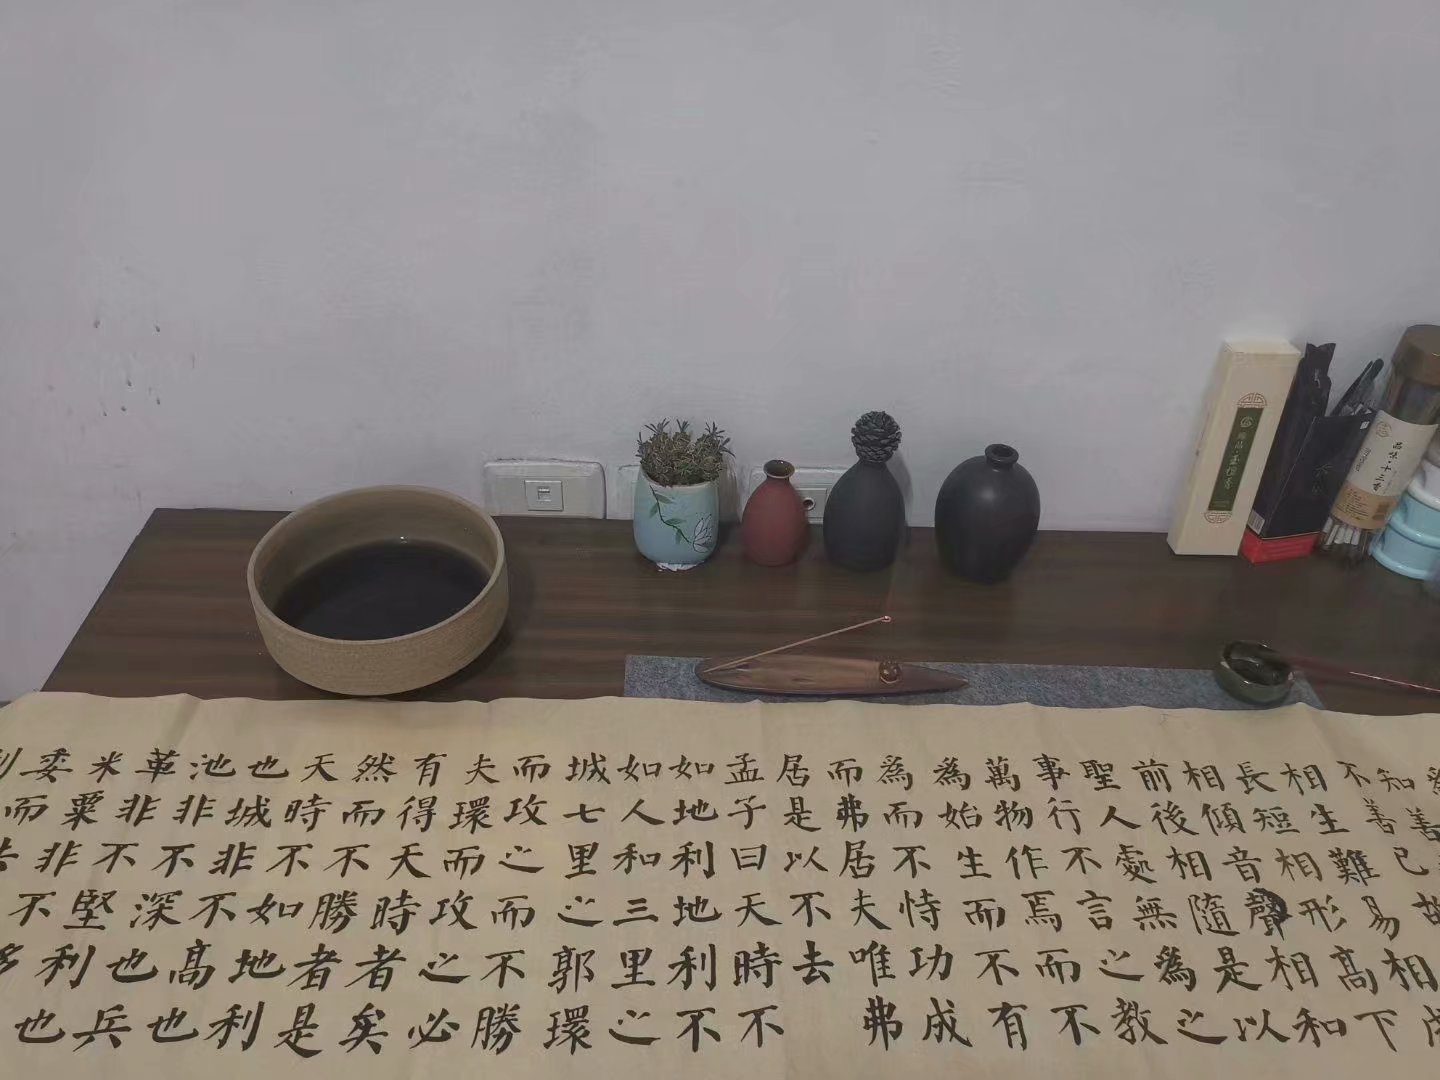 知善
不善已故
相生難易相成
長短相形高下
相傾音聲相和
前後相隨是以
聖人處無為之
事行不言之教
萬物作焉而不
為始生而不有
為而不恃功成
而弗居夫唯弗
居是以不去
孟子曰天時不
如地利地利不
如人和三里之
城七里之郭環
而攻之而不勝
夫環而攻之必
有得天時者矣
然而不勝者是
天時不如地利
也城非不高也
池非不深也兵
革非不堅利也
米粟非不多也
委而去